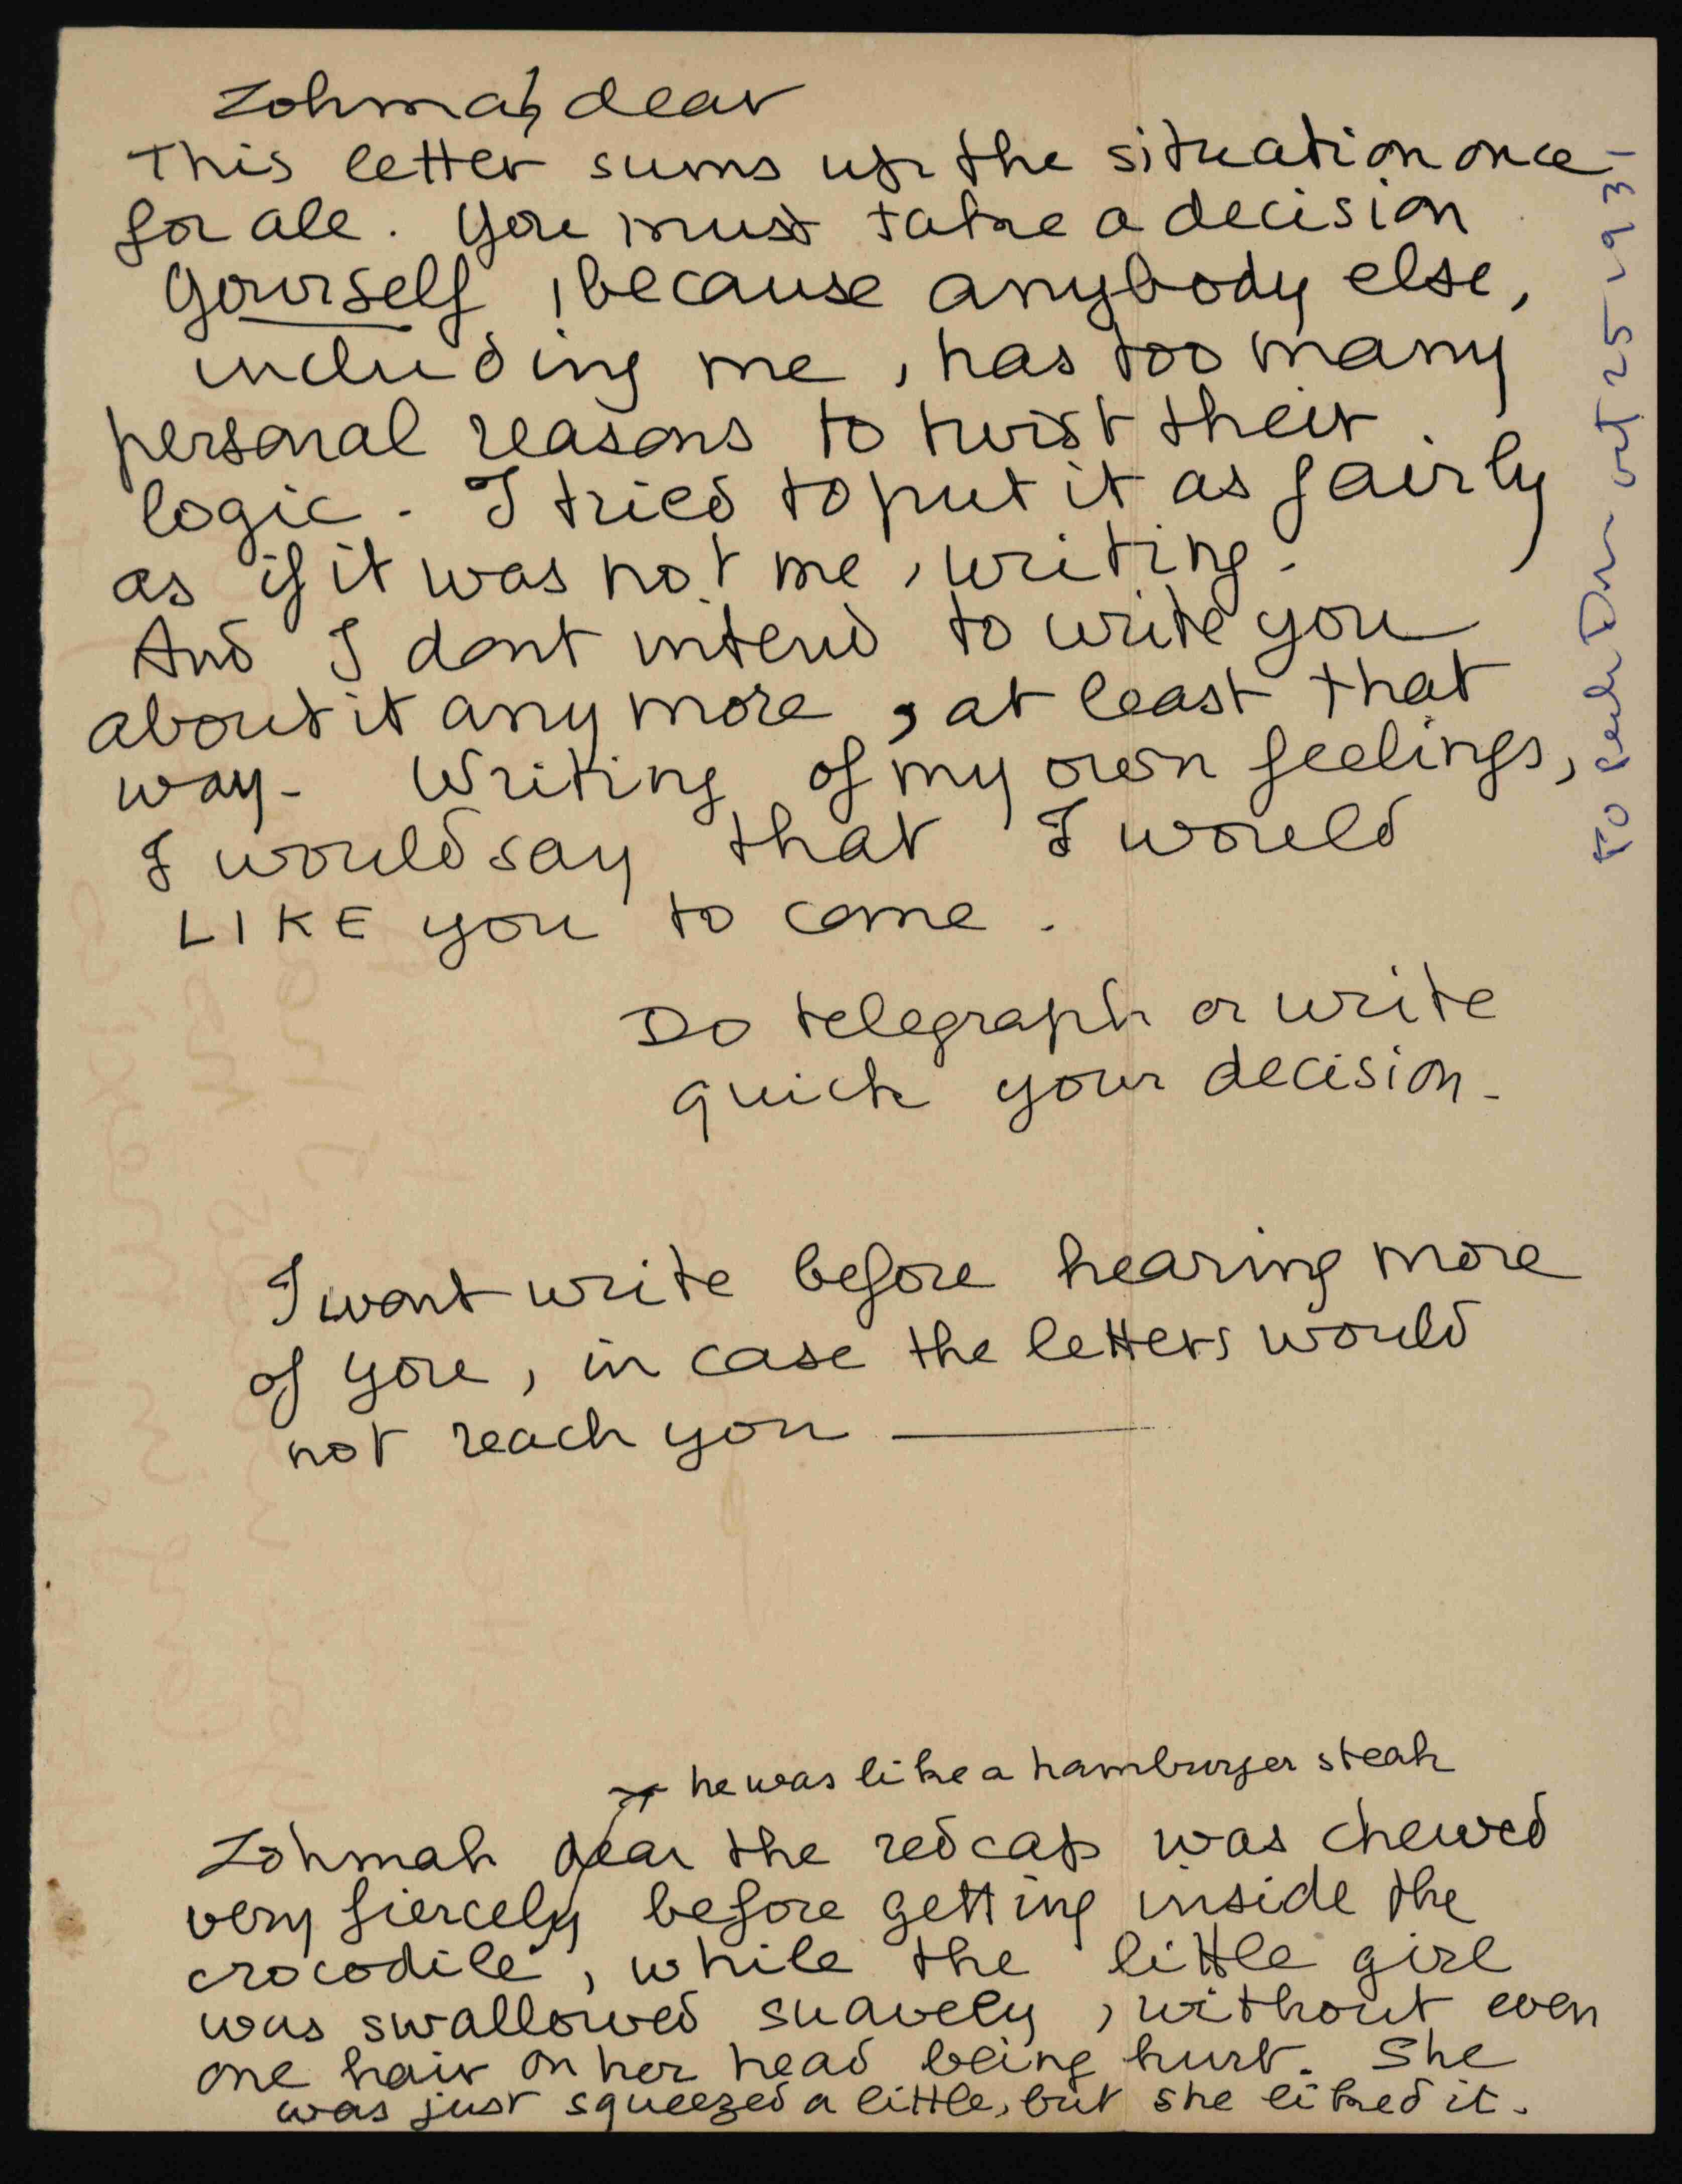 Zohmah dear
This letter sums up the situation once
for all. You must take a decision
yourself, because anybody else,
including me, has too many
personal reasons to twist their
logic. I tried to put it as fairly
as if it was not me, writing.
And I dont intend to write you
about it any more, at least that
way. Writing of my own feelings,
I would say that I would
LIKE you to come.
Do telegraph or write
quick your decision.
I wont write before hearing more
of you, in case the letters would
not reach you —
he was like a hamburger steak
Zohmah dear the redcap was chewed
very fiercely before getting inside the
crocodile, while the little girl
was swallowed suavely, without even
one hair on her head being hurt. She
was just squeezed a little, but she liked it.
oct 25 193